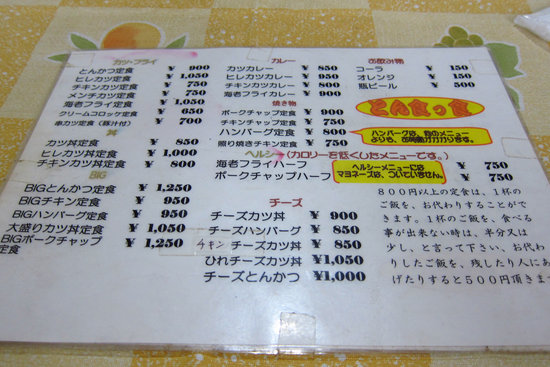 カツ・フライ
とんかつ定食 ¥ 900
ヒレカツ定食 ¥ 1,050
チキンカツ定食 ¥ 750
メンチカツ定食 ¥ 750
海老フライ定食 ¥ 1,050
クリームコロッケ定食 ¥ 650
串カツ定食(豚汁付) ¥ 700
丼
カツ丼定食 ¥ 850
ヒレカツ丼定食 ¥ 1,000
チキンカツ丼定食 ¥ 800
BIG
BIGとんかつ定食 ¥ 1,250
BIGチキン定食 ¥ 950
BIGハンバーグ定食 ¥ 950
大盛りカツ丼定食 ¥ 1,050
BIGポークチャップ定食 ¥ 1,250
カレー
カツカレー ¥ 850
ヒレカツカレー ¥ 950
チキンカツカレー ¥ 750
海老フライカレー ¥ 950
焼き物
ポークチャップ定食 ¥ 900
チキンチャップ定食 ¥ 750
ハンバーグ定食 ¥ 800
照り焼きチキン定食 ¥ 750
お飲み物
コーラ ¥ 150
オレンジ ¥ 150
瓶ビール ¥ 500
とん食っ食
ハンバーグは、他のメニュー
よりも、お時間がかかります。
ヘルシー(カロリーを低くしたメニューです。)
海老フライハーフ ¥ 750
ポークチャップハーフ ¥ 750
ヘルシーメニューには
マヨネーズは、ついていません。
チーズ
チーズカツ丼 ¥ 900
チーズハンバーグ ¥ 850
チキンチーズカツ丼 ¥ 850
ひれチーズカツ丼 ¥1,050
チーズとんかつ ¥1,000
800円以上の定食は、1杯の
ご飯を、お代わりすることがで
きます。1杯のご飯を、食べる
事が出来ない時は、半分又は
少し、と言って下さい、お代わ
りしたご飯を、残したり人にあ
げたりすると500円頂きま